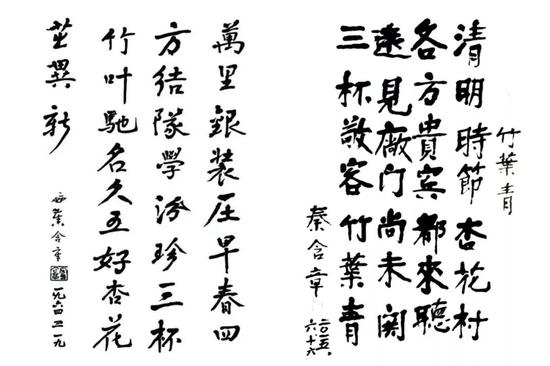 竹葉青
清明時節杏花村
各方貴宾都來聴
遠見廠门尚未関
三杯敬客竹葉青
秦含章
六十六
萬里銀装圧早春四
方结隊學汾珍三杯
竹叶馳名久五好杏花
茁異新
含章
一九六四